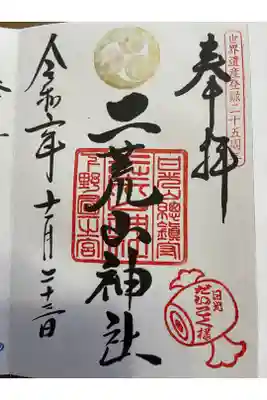 奉拝
世界遺産登録二十五周年
二荒山神社
日光山總鎮守
下野國一之宮
日光だいこく様
令和六年十一月二十三日